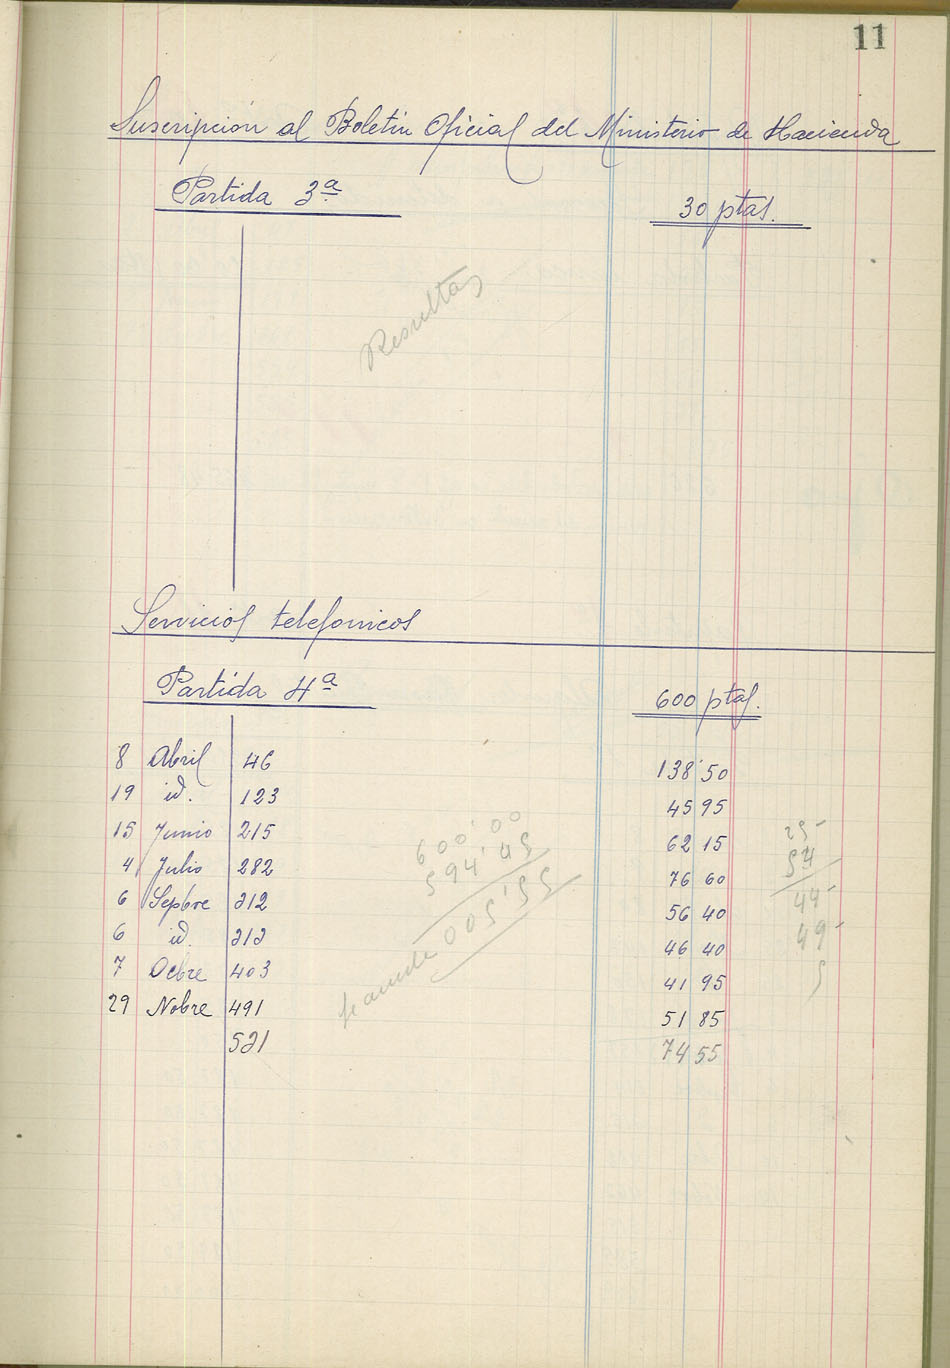 11
Suscripción al Boletín Oficial del Ministerio de Hacienda
Partida 3ª 30 ptas.
Resultas
Servicios telefonicos
Partida 4ª 600 ptas.
8 Abril 46 138'50
19 id. 123 45 95
15 Junio 215 62 15
4 Julio 282 76 60
6 Sepbre 212 56 40
6 id. 212 46 40
7 Ocbre 403 41 95
29 Nobre 491 51 85
521 74 55
600'00
594'45
005'55
25-
54
44-
49-
5